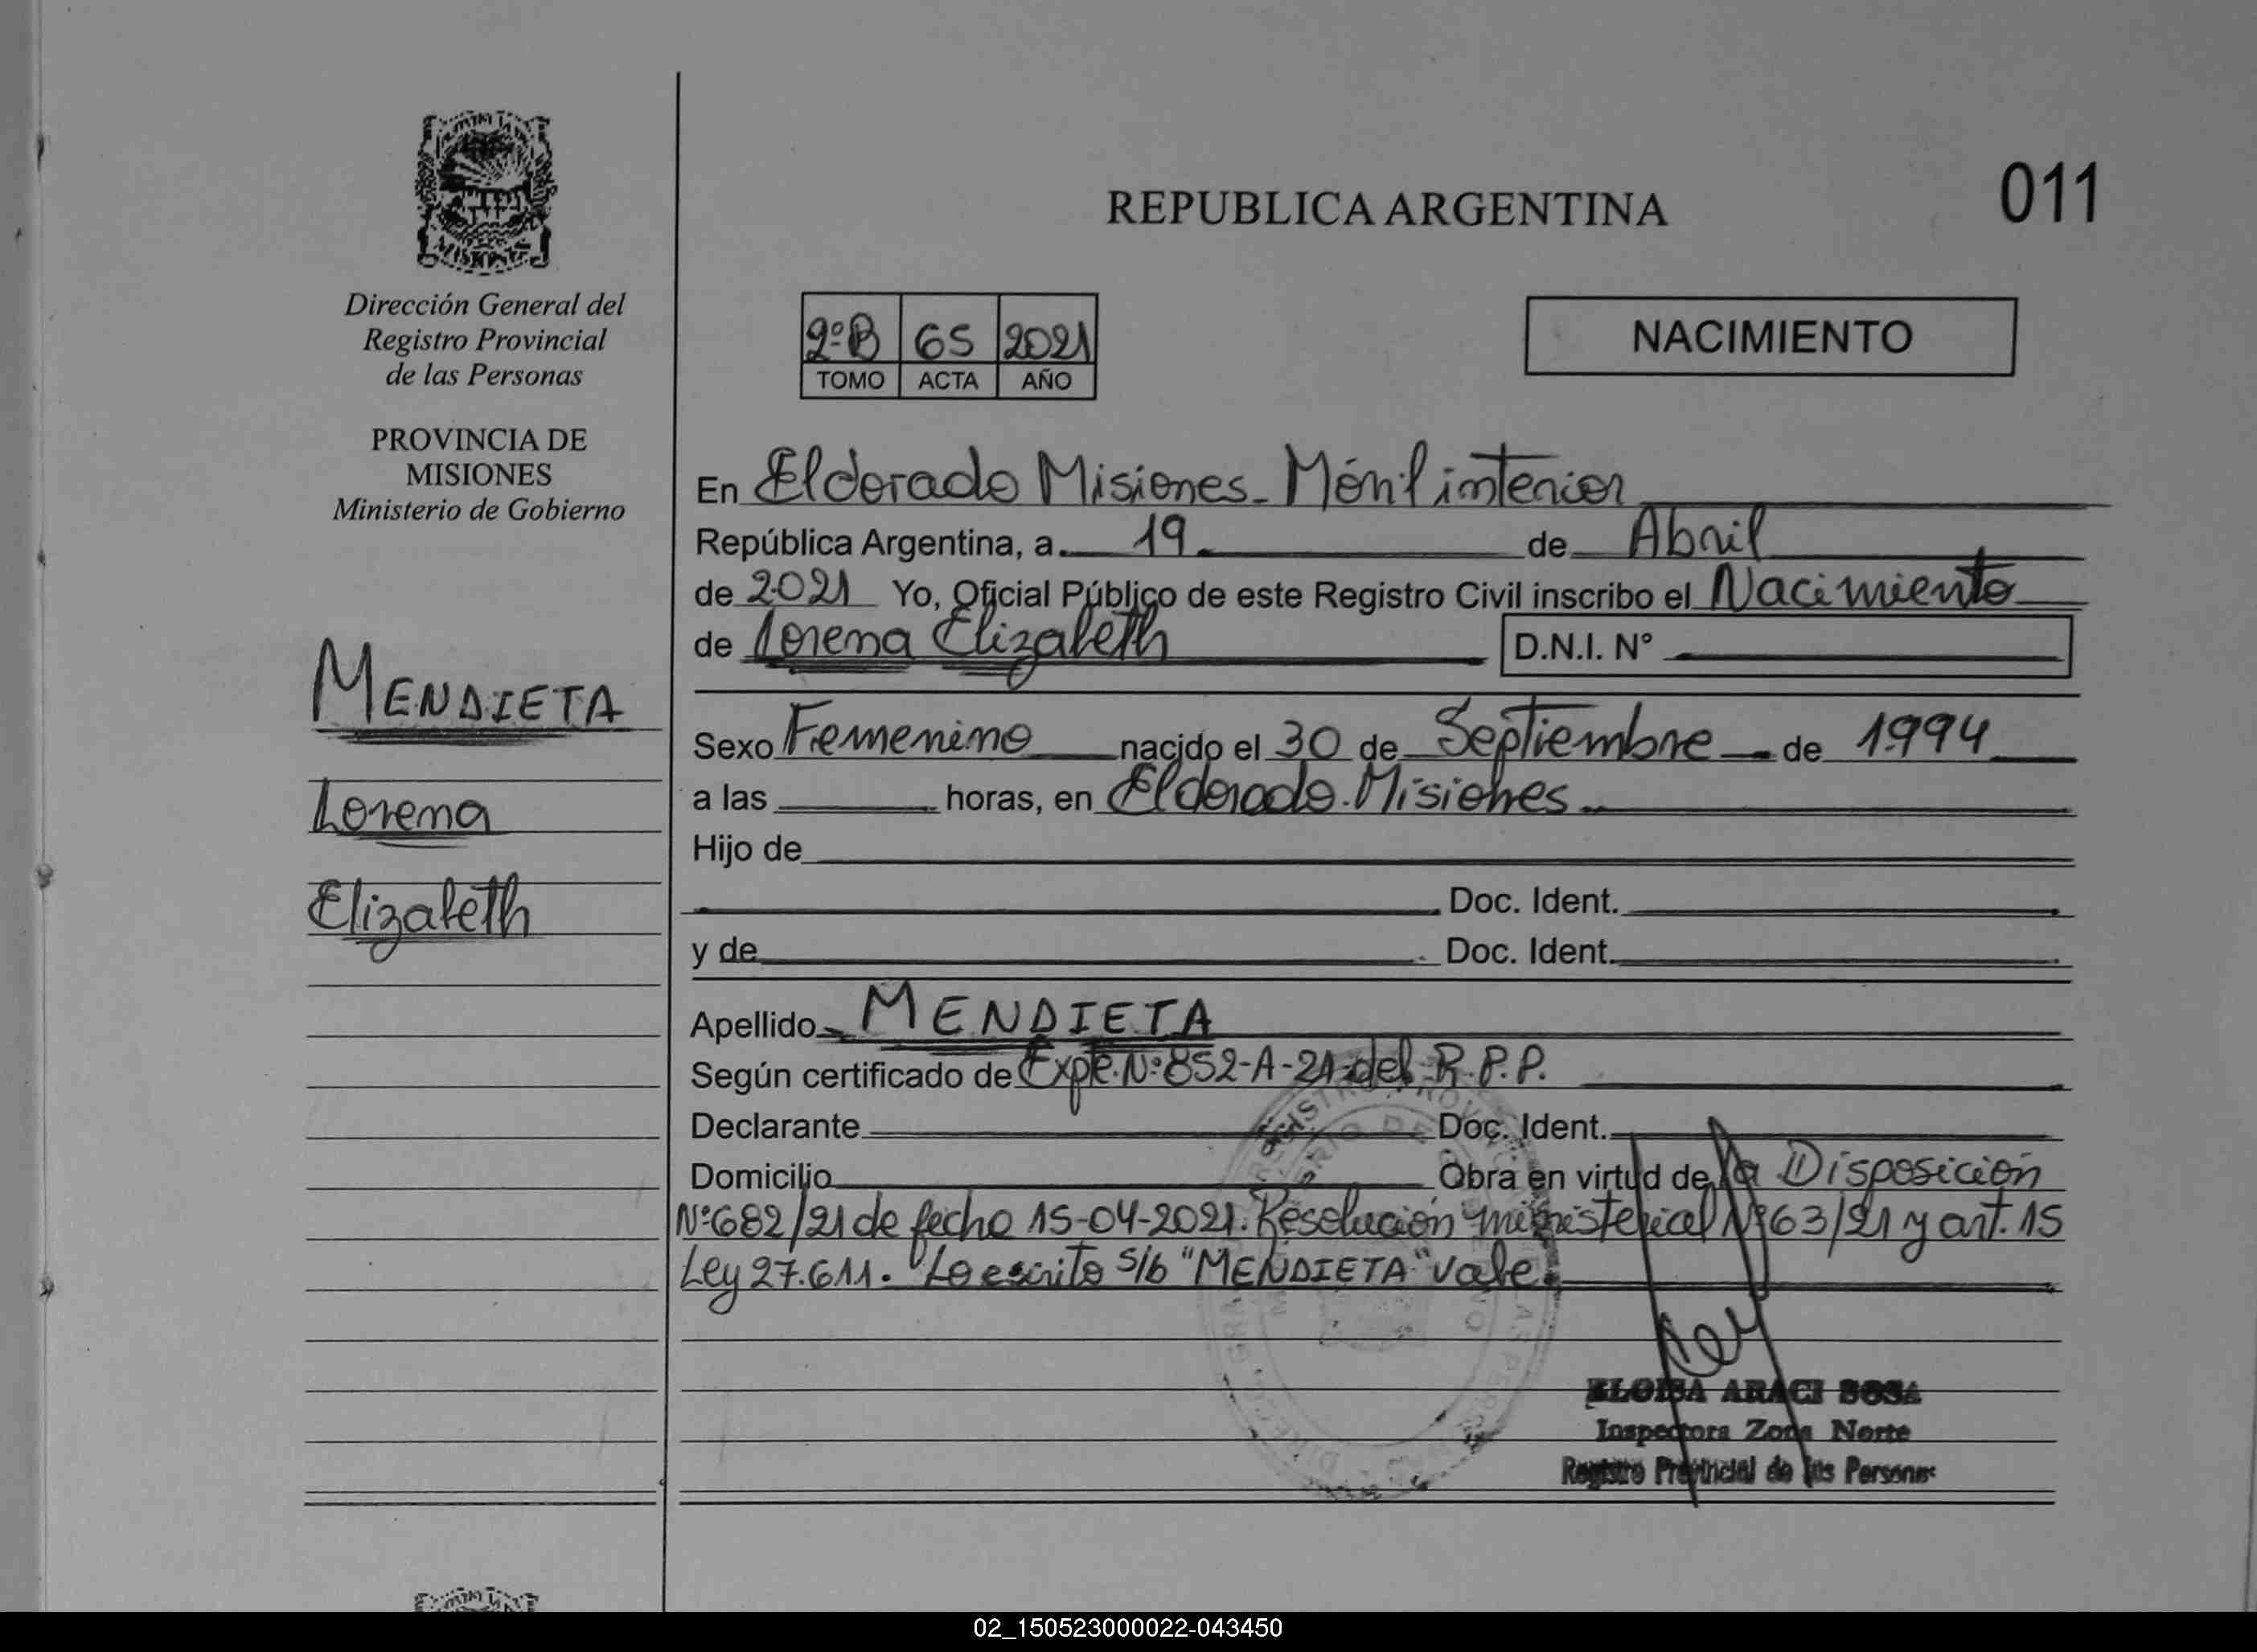 MISIONES
Dirección General del
Registro Provincial
de las Personas
PROVINCIA DE
MISIONES
Ministerio de Gobierno
MENDIETA
Lorena
Elizabeth
REPUBLICA ARGENTINA
011
2º B 65 2021
TOMO ACTA AÑO
NACIMIENTO
En Eldorado Misiones - Móvil interior
República Argentina, a 19 de Abril
de 2021 Yo, Oficial Público de este Registro Civil inscribo el Nacimiento
de Lorena Elizabeth D.N.I. Nº
Sexo Femenino nacido el 30 de Septiembre de 1994
a las horas, en Eldorado. Misiones
Hijo de
Doc. Ident.
y de Doc. Ident.
Apellido MENDIETA
Según certificado de Expte. Nº 852-A-21 del R.P.P.
Declarante Doc. Ident.
Domicilio Obra en virtud de la Disposición
Nº 682/21 de fecha 15-04-2021. Resolución ministerial Nº 63/21 y art. 15
Ley 27.611. Lo escrito s/b "MENDIETA" vale.
ELOISA ARACI SOSA
Inspectora Zona Norte
Registro Provincial de las Personas
02_150523000022-043450